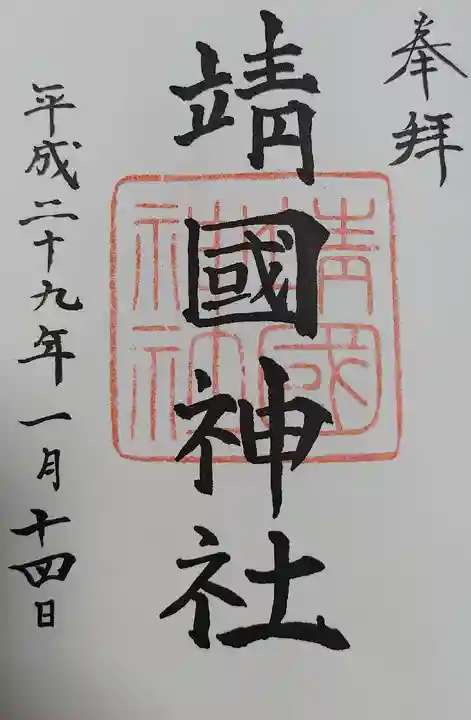 奉拜
靖國神社
靖國神社
平成二十九年一月十四日